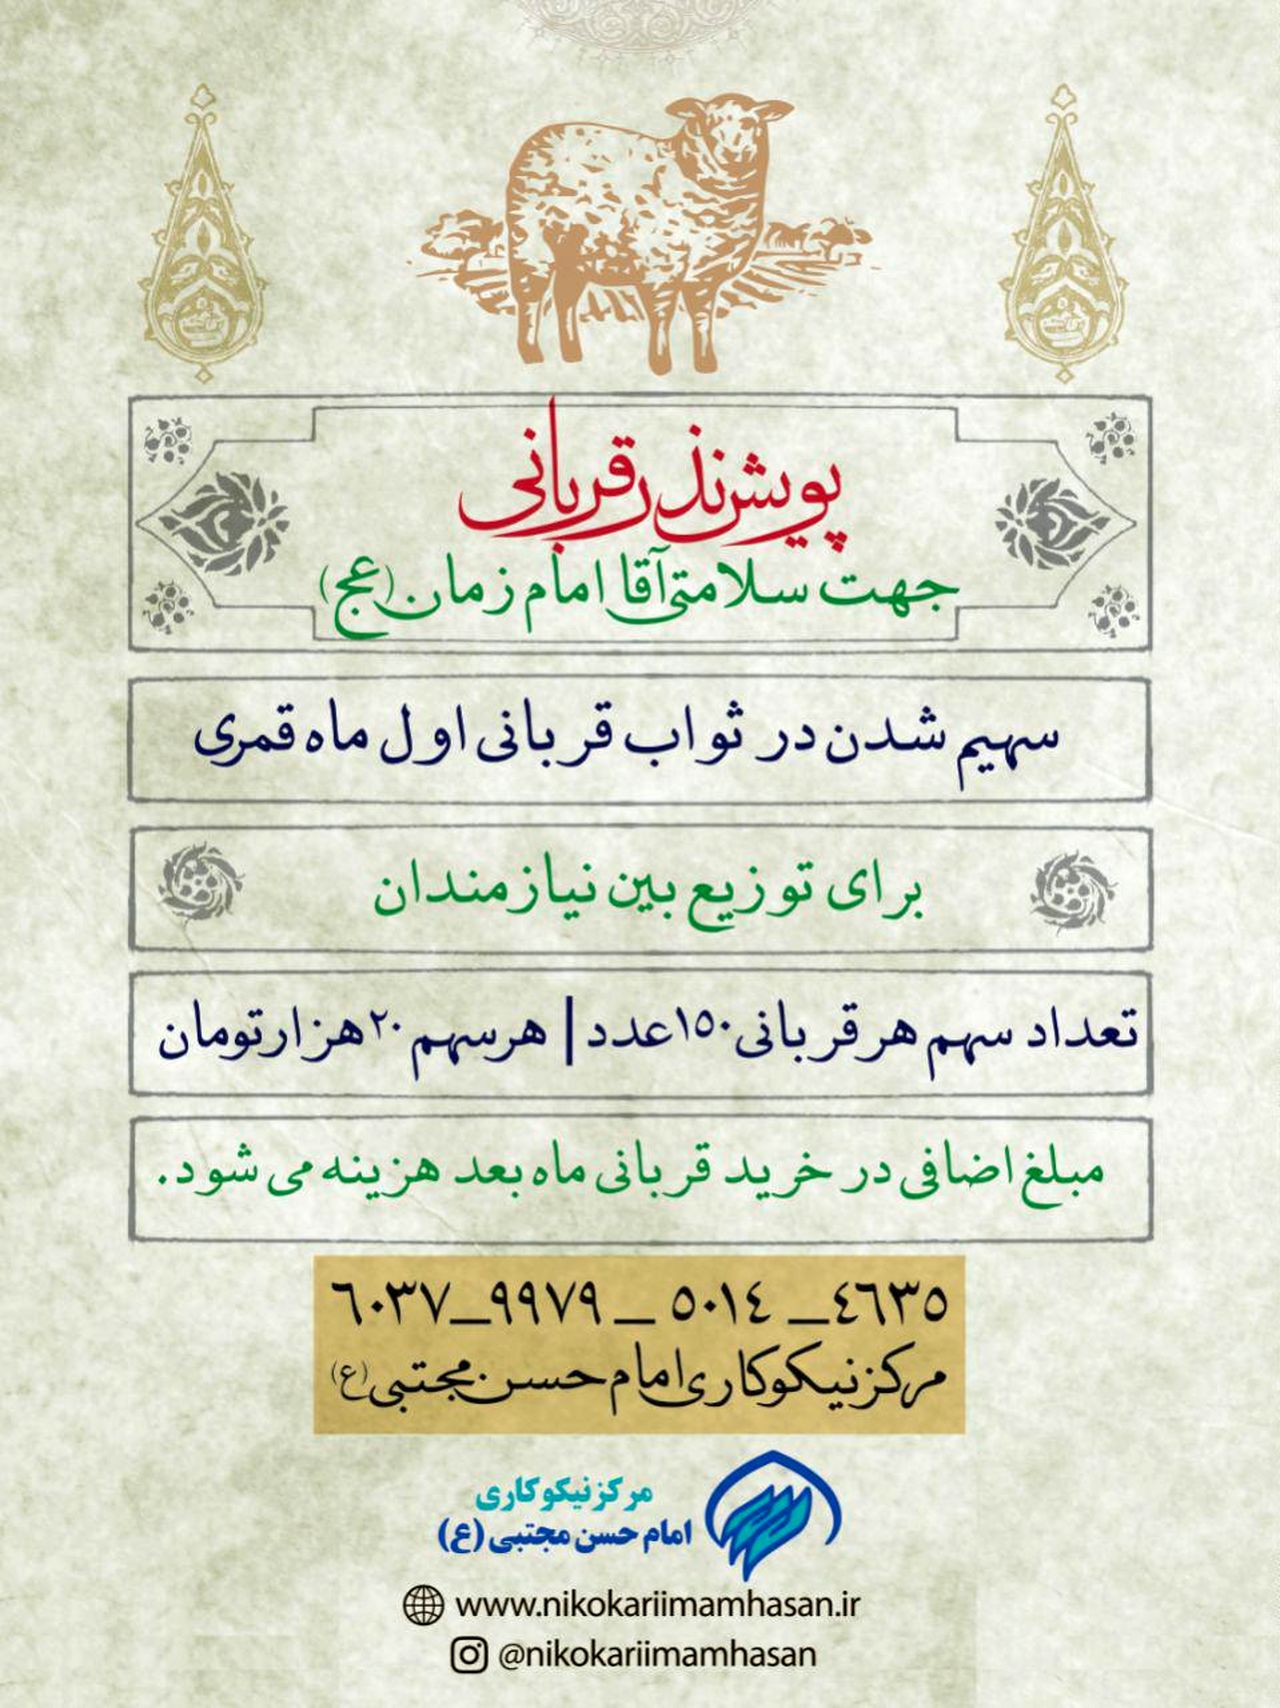 پویش نذر قربانی
جهت سلامتی آقا امام زمان (عج)
سهیم شدن در ثواب قربانی اول ماه قمری
برای توزیع بین نیازمندان
تعداد سهم هر قربانی ۱۵۰ عدد | هر سهم ۲۰ هزار تومان
مبلغ اضافی در خرید قربانی ماه بعد هزینه می شود.
٦٠٣٧_٩٩٧٩ _ ٥٠١٤ _ ٤٦٣٥
مرکز نیکوکاری امام حسن مجتبی (ع)
مرکز نیکوکاری
امام حسن مجتبی (ع)
www.nikokariimamhasan.ir
@nikokariimamhasan